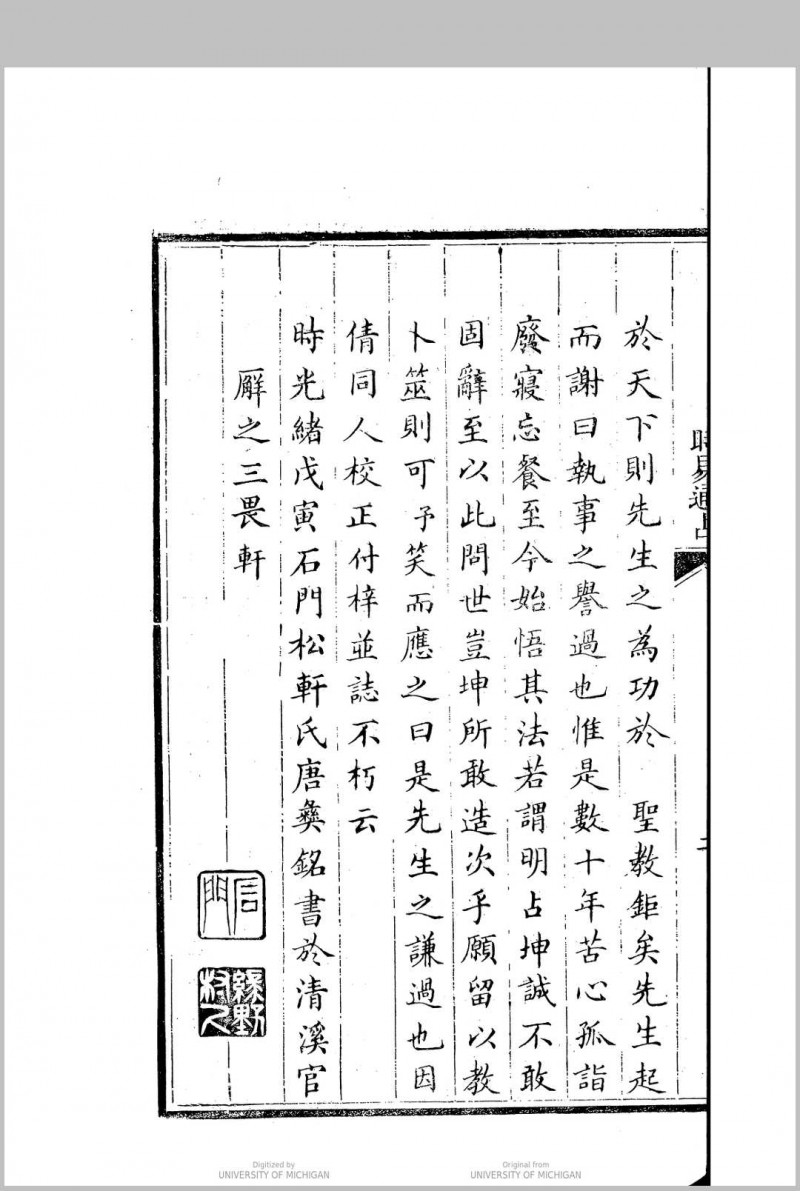 時易通占
二
於天下則先生之為功於　聖教鉅矣先生起
而謝曰執事之譽過也惟是數十年苦心孤詣
廢寢忘餐至今始悟其法若謂明占坤誠不敢
固辭至以此問世豈坤所敢造次乎願留以教
卜筮則可予笑而應之曰是先生之謙過也因
倩同人校正付梓並誌不朽云
時光緒戊寅石門松軒氏唐彝銘書於清溪官
廨之三畏軒
綠野村人
Digitized by
UNIVERSITY OF MICHIGAN
Original from
UNIVERSITY OF MICHIGAN